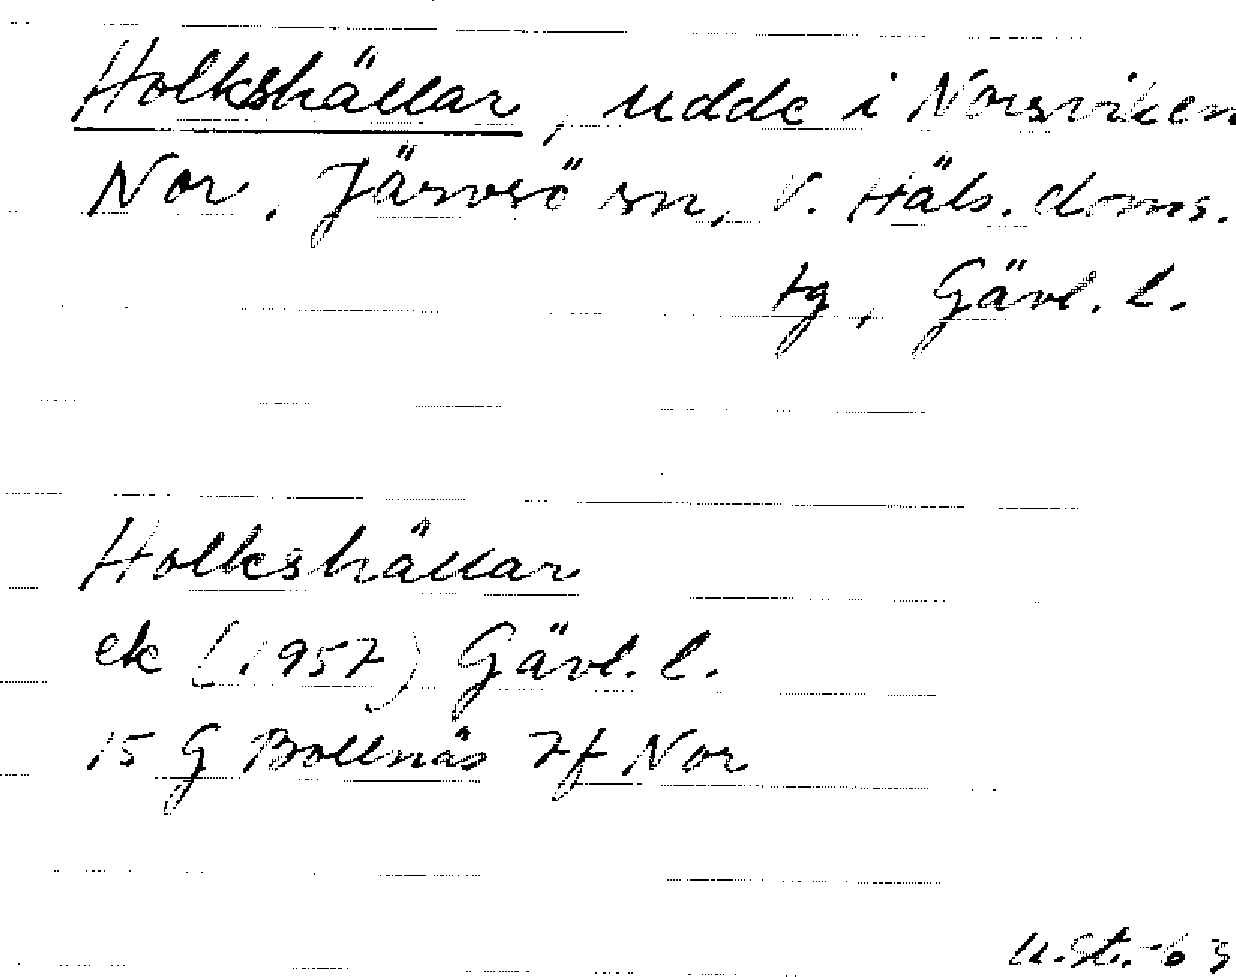 Holkshällar, udde i Norsviken
Nor. Järvsö sn, V. Häls. doms.
tg, Gävl. l.
Holkshällar
ek (1957) Gävl. l.
15 G Bollnäs 7f Nor
U.St.-63